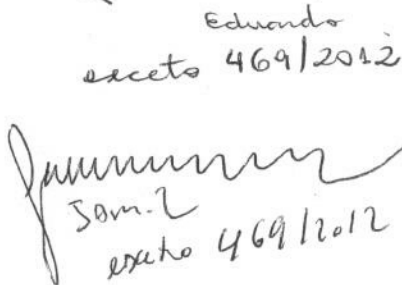 Eduardo
exceto 469/2012
exceto 469/2012